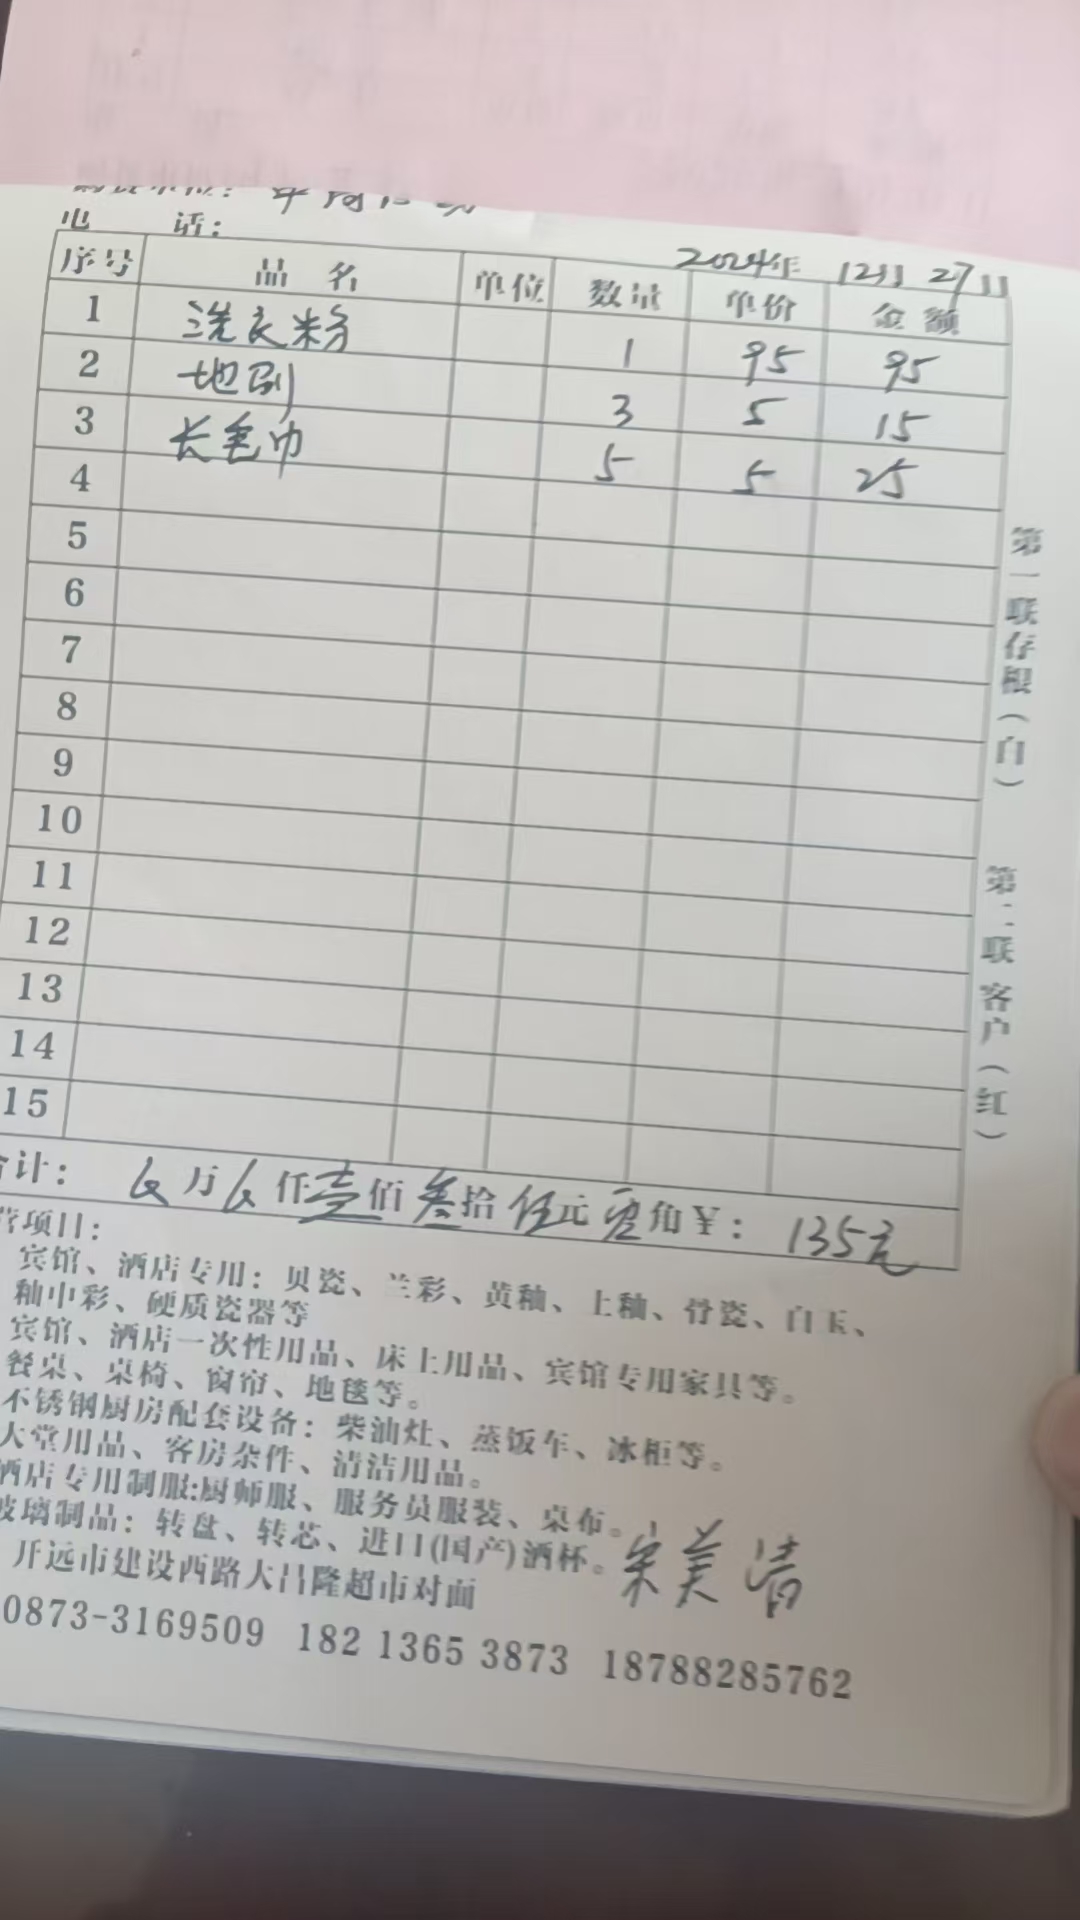 电 话：
2024年 12月 27日
序号 品 名 单位 数量 单价 金 额
1 洗衣粉 1 95 95
2 地刷 3 5 15
3 长毛巾 5 5 25
4
5
6
7
8
9
10
11
12
13
14
15
第一联存根（白）
第二联客户（红）
合计： 万 仟壹佰叁拾伍元零角￥： 135元
营项目：
宾馆、酒店专用：贝瓷、兰彩、黄釉、上釉、骨瓷、白玉、
釉中彩、硬质瓷器等
宾馆、酒店一次性用品、床上用品、宾馆专用家具等。
餐桌、桌椅、窗帘、地毯等。
不锈钢厨房配套设备：柴油灶、蒸饭车、冰柜等。
大堂用品、客房杂件、清洁用品。
酒店专用制服:厨师服、服务员服装、桌布。
玻璃制品：转盘、转芯、进口(国产)酒杯。
宋美清
开远市建设西路大昌隆超市对面
0873-3169509 182 1365 3873 18788285762